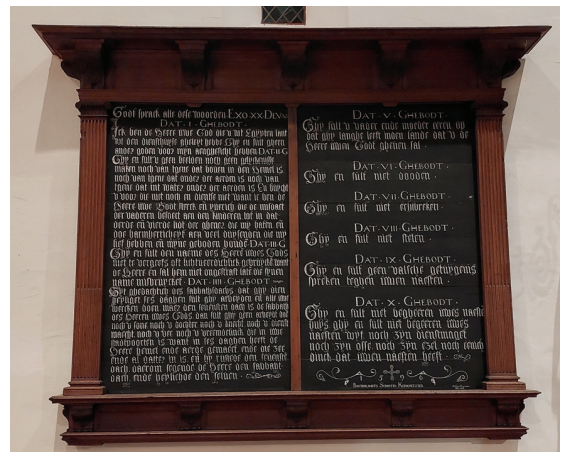 Godt sprack alle dese woorden Exo xx Dev v
Dat · I · Ghebodt ·
Ick ben de Heere uwe God die u uit Egypten lant
uit den diensthuyse gheleyt hebbe Ghy en sult gheen
ander goden voor myn aengesichte hebben Dat II G
Ghy en sult u geen beelden noch geen gelyckenisse
maken noch van tgene dat boven in den Hemel is
noch van tgene dat onder op der aerden is noch van
tgene dat int water onder der aerden is En buycht
u voor die niet noch en dienste niet want ick ben de
Heere uwe Godt sterck en yverich die de misdaet
der vaderen besoect aen den kinderen tot in dat
derde en vierde lidt der ghener die my haten en
doe barmherticheyt aen veel duysenden die my
lief hebben en myne geboden houde Dat III G
Ghy en sult den naeme des Heere uwes Gods
niet te vergeefs
de Heere en sal hem niet ongestraft laten die synen
name misbruycket · Dat · IIII · Ghebodt
Syt ghedachtich des sabbathdachs dat ghy dien
heyliget ses daghen sult ghy arbeyden en alle uwe
wercken doen maer den sevensten dach is de sabbath
des Heeren uwes Gods dan sult ghy geen arbeyt doen
noch u sone noch u dochter noch u knecht noch u dienst
maecht noch u vee noch u vreemdelinck die in uwe
stadtpoorten is want in ses daghen heeft de
Heere hemel ende aerde gemaect ende die zee
ende al datter in is en hy rustede den sevensten
dach daerom segende de Heere den sabbath
dach ende heylichde den selven ·
Dat · V · Ghebodt ·
Ghy sult u vader ende moeder eeren op
dat ghy langhe leeft inden lande dat u de
Heere uwen Godt gheven sal ·
Dat · VI · Ghebodt ·
Ghy en sult niet dooden ·
Dat · VII · Ghebodt ·
Ghy en sult niet echtbreken ·
Dat · VIII · Ghebodt ·
Ghy en sult niet stelen ·
Dat · IX · Ghebodt ·
Ghy en sult geen valsche getuygenis
spreken teghen uwen naesten ·
Dat · X · Ghebodt ·
Ghy en sult niet begheeren uwes naesten
huys ghy en sult niet begeeren uwes
naesten wyf noch zyn dienstmaget
noch zyn osse noch zyn ezel noch eenich
dinck dat uwen naesten heeft ·